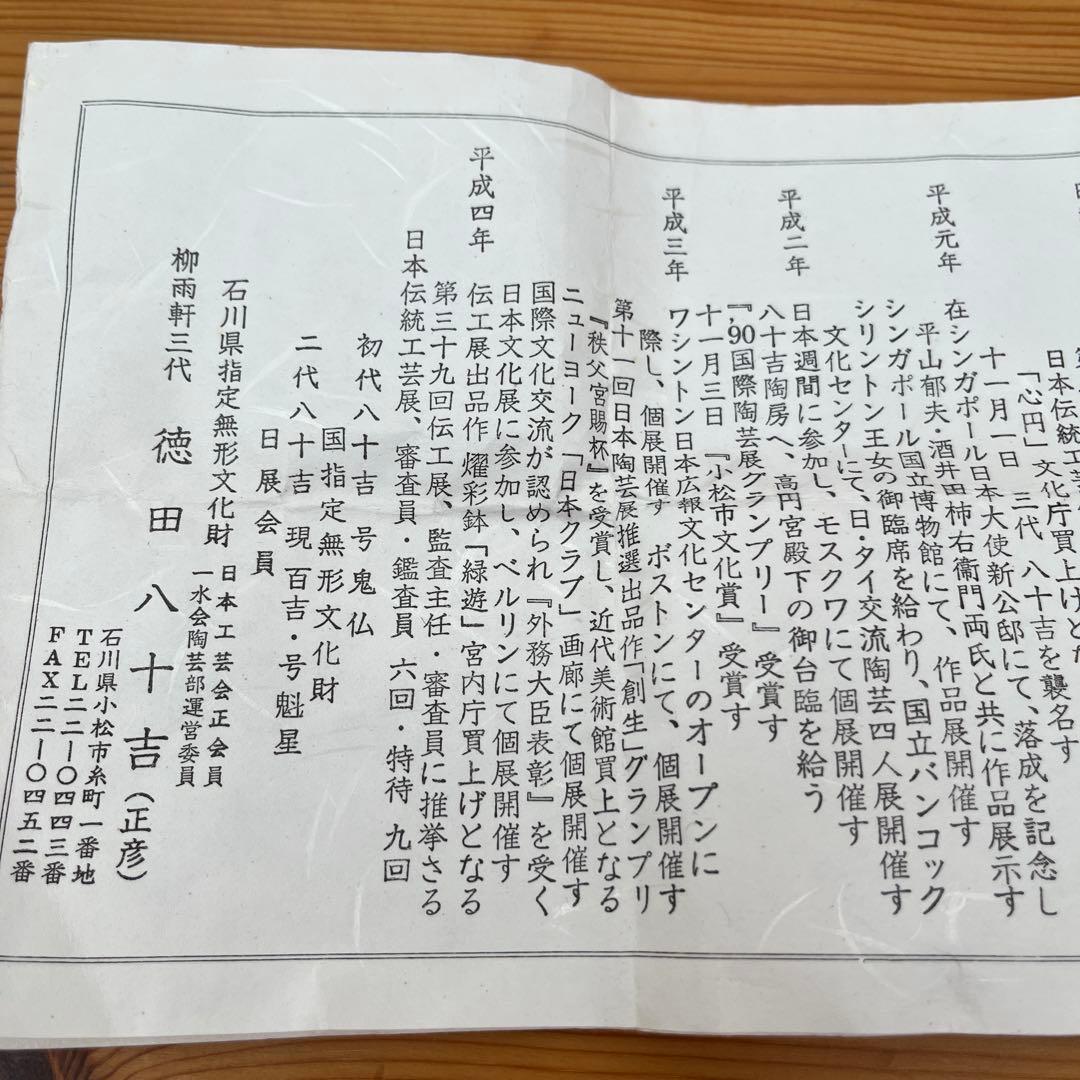 日本伝統工芸
「心円」文化庁買上げとな
十一月一日　三代　八十吉を襲名す
平成元年
在シンガポール日本大使新公邸にて、落成を記念し
平山郁夫・酒井田柿右衛門両氏と共に作品展示す
シンガポール国立博物館にて、作品展開催す
シリントン王女の御臨席を給わり、国立バンコック
文化センターにて、日・タイ交流陶芸四人展開催す
平成二年
日本週間に参加し、モスクワにて個展開催す
八十吉陶房へ、高円宮殿下の御台臨を給う
『'90国際陶芸展グランプリー』受賞す
十一月三日　『小松市文化賞』受賞す
平成三年
ワシントン日本広報文化センターのオープンに
際し、個展開催す　ボストンにて、個展開催す
第十一回日本陶芸展推選出品作「創生」グランプリ
『秩父宮賜杯』を受賞し、近代美術館買上となる
ニューヨーク「日本クラブ」画廊にて個展開催す
国際文化交流が認められ『外務大臣表彰』を受く
平成四年
日本文化展に参加し、ベルリンにて個展開催す
伝工展出品作「燿彩鉢「緑遊」宮内庁買上げとなる
第三十九回伝工展、監査主任・審査員に推挙さる
日本伝統工芸展、審査員・鑑査員　六回・特待　九回
初代八十吉　号鬼仏
国指定無形文化財
二代八十吉　現百吉・号魁星
日展会員
石川県指定無形文化財　日本工芸会正会員
一水会陶芸部運営委員
柳雨軒三代　徳田八十吉（正彦）
石川県小松市糸町一番地
TEL二二ー〇四四三番
FAX二二ー〇四五二番